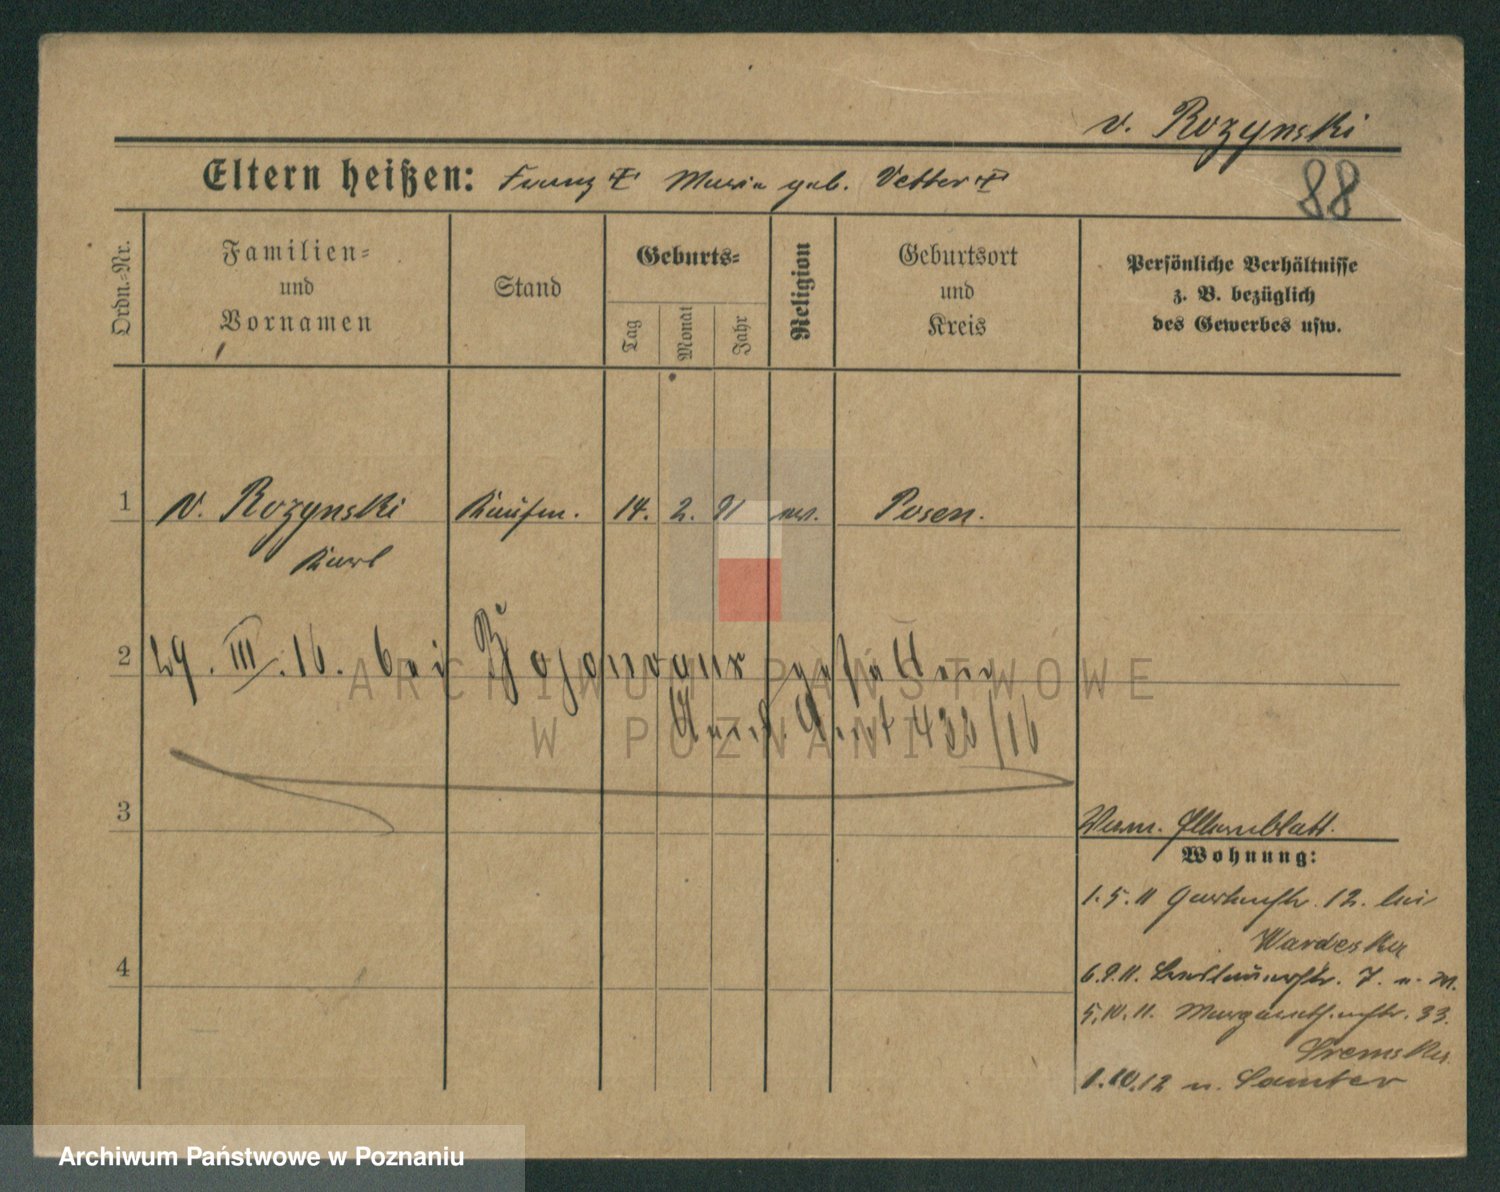 v. Rozynski
88
Eltern heißen: Franz † Maria geb. Vetter †
Ordn.-Nr.
Familien-
und
Vornamen
Stand
Geburts-
Tag
Monat
Jahr
Religion
Geburtsort
und
Kreis
Persönliche Verhältnisse
z. B. bezüglich
des Gewerbes usw.
1 v. Rozynski Kaufm. 14. 2. 91 Posen.
Karl
2 29. III. 16. bei gefallen
433/16
3
Elternblatt.
Wohnung:
1.5.11 Gartenstr. 12. bei
Wardeska
4
6.9.11. 7. n. m.
5.10.11. Margarethenstr. 33.
Sremska
1.10.12 n. Samter
ARCHIWUM PAŃSTWOWE
W POZNANIU
Archiwum Państwowe w Poznaniu